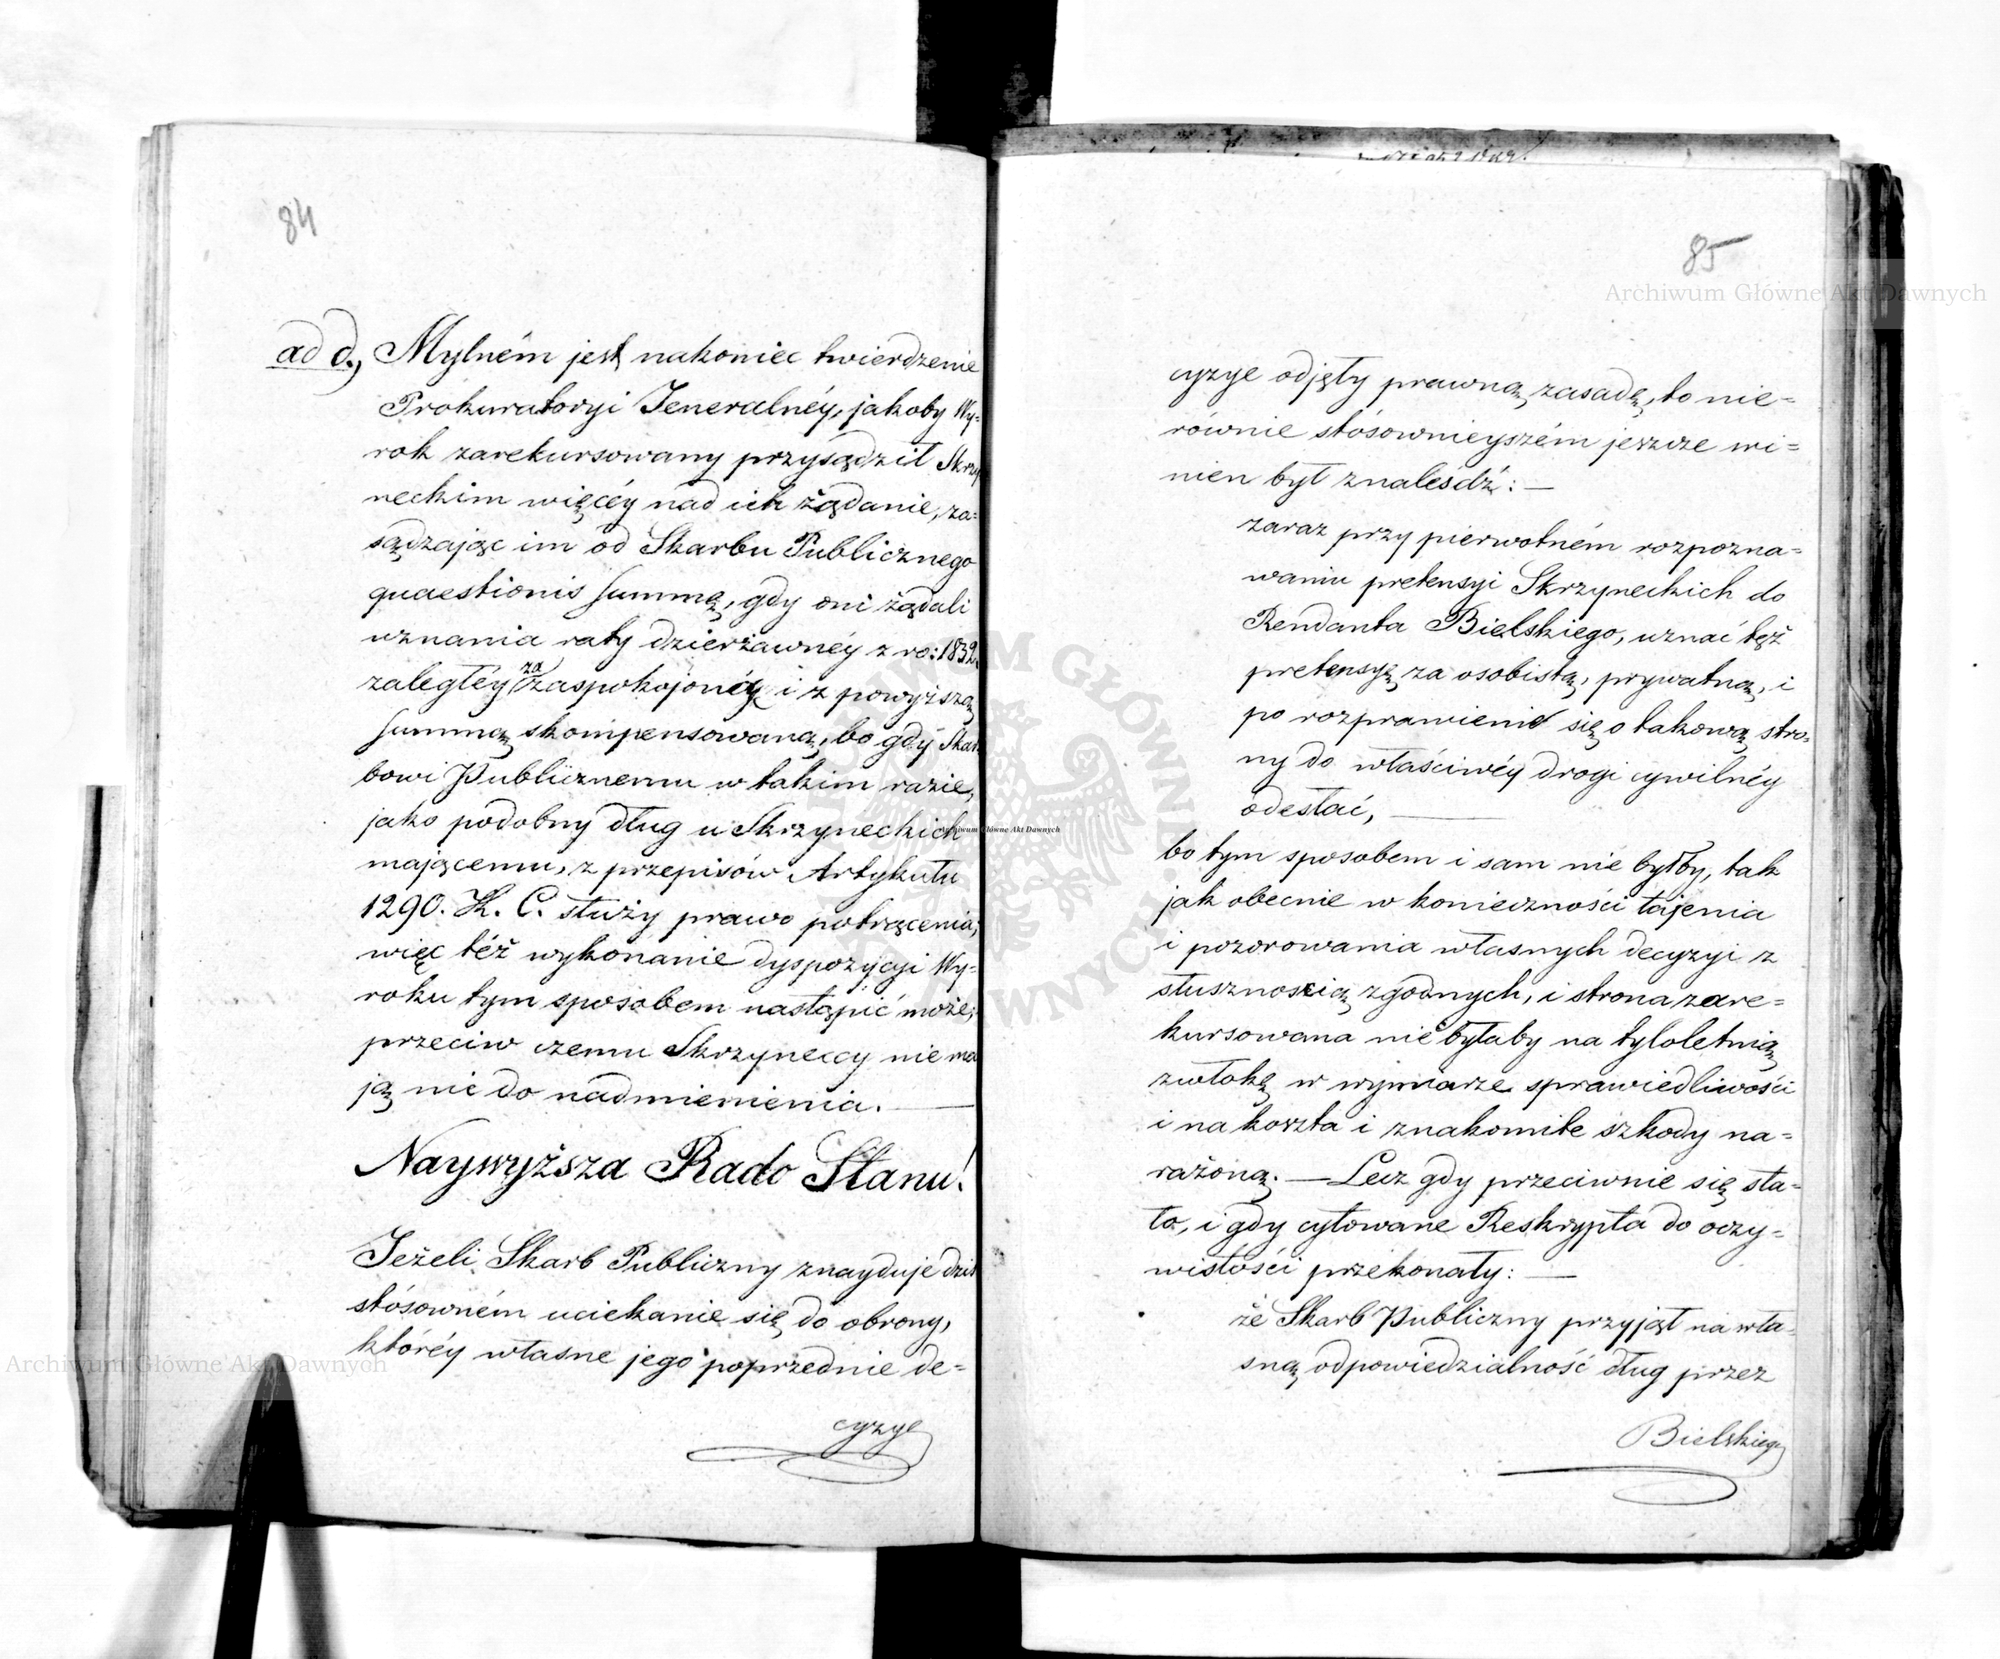 84
ad d., Mylném jest nakoniec twierdzenie
Prokuratoryi Jeneralnéy, jakoby Wy-
rok zarekursowany przysądził Skrzy
neckim więcéy nad ich żądanie, za-
sądzając im od Skarbu Publicznego
quaestionis summę, gdy oni żądali
uznania raty dzierżawnéy z ro: 1832.
zaległéy za zaspokojoną i z powyższą
summą skompensowaną, bo gdy Skar
bowi Publicznemu w takim razie,
jako podobny dług u Skrzyneckich
mającemu, z przepisów Artykułu
1290. K. C. służy prawo potrącenia,
więc téż wykonanie dyspozycyi Wy-
roku tym sposobem nastąpić może,
przeciw czemu Skrzyneccy nie ma
ją nic do nadmienienia. —
Naywyższa Rado Stanu!
Jeżeli Skarb Publiczny znayduje dziś
stósowném uciekanie się do obrony,
któréy własne jego poprzednie de-
cyzye
85
cyzye odjęły prawną zasadę, to nie-
równie stósownieyszém jeszcze wi-
nien był znaleśdź: —
zaraz przy pierwotném rozpozna-
waniu pretensyi Skrzyneckich do
Rendanta Bielskiego, uznać tęż
pretensyę za osobistą, prywatną, i
po rozprawienie się o takową stro-
ny do właściwéy drogi cywilnéy
odesłać, —
bo tym sposobem i sam nie byłby, tak
jak obecnie w konieczności tajenia
i pozorowania własnych decyzyi z
słusznością zgodnych, i strona zare-
kursowana nie byłaby na tyloletnią
zwłokę w wymiarze sprawiedliwości
i na koszta i znakomite szkody na-
rażoną. — Lecz gdy przeciwnie się sta-
ło, i gdy cytowane Reskrypta do oczy-
wistości przekonały: —
że Skarb Publiczny przyjął na wła-
sną odpowiedzialność dług przez
Bielskiego
Archiwum Główne Akt Dawnych
Archiwum Główne Akt Dawnych
Archiwum Główne Akt Dawnych